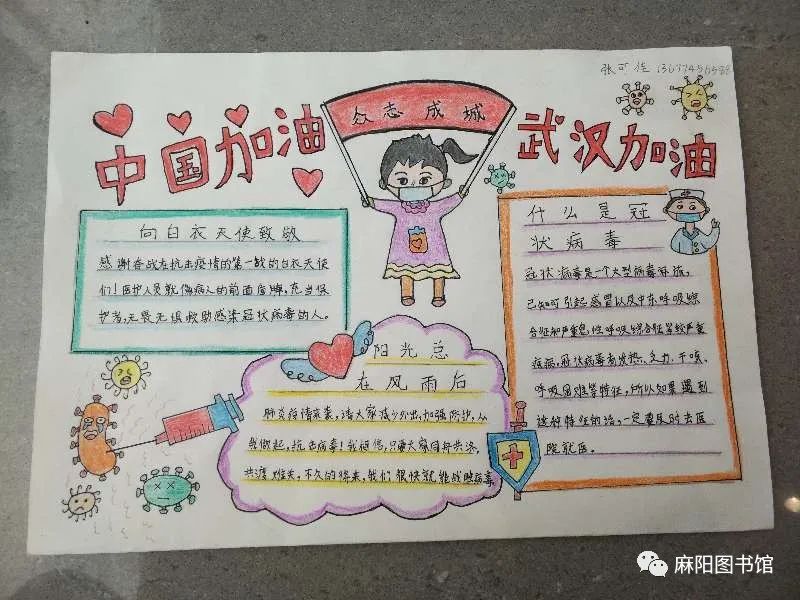 张可佳
众志成城
中国加油
武汉加油
向白衣天使致敬
感谢奋战在抗击疫情的第一线的白衣天使
们！医护人员就像病人的前面盾牌，充当保
护者，无畏无惧救助感染冠状病毒的人。
阳光总
在风雨后
肺炎疫情来袭，请大家减少外出，加强防护，从
我做起，抗击病毒！我相信，只要大家同舟共济，
共渡难关，不久的将来，我们很快就能战胜病毒
什么是冠
状病毒
冠状病毒是一个大型病毒家族，
已知可引起感冒以及中东呼吸综
合征和严重急性呼吸综合征等较严重
疾病，冠状病毒有发热、乏力、干咳、
呼吸困难等特征，所以如果遇到
这种特征的话，一定要及时去医
院就医。
麻阳图书馆